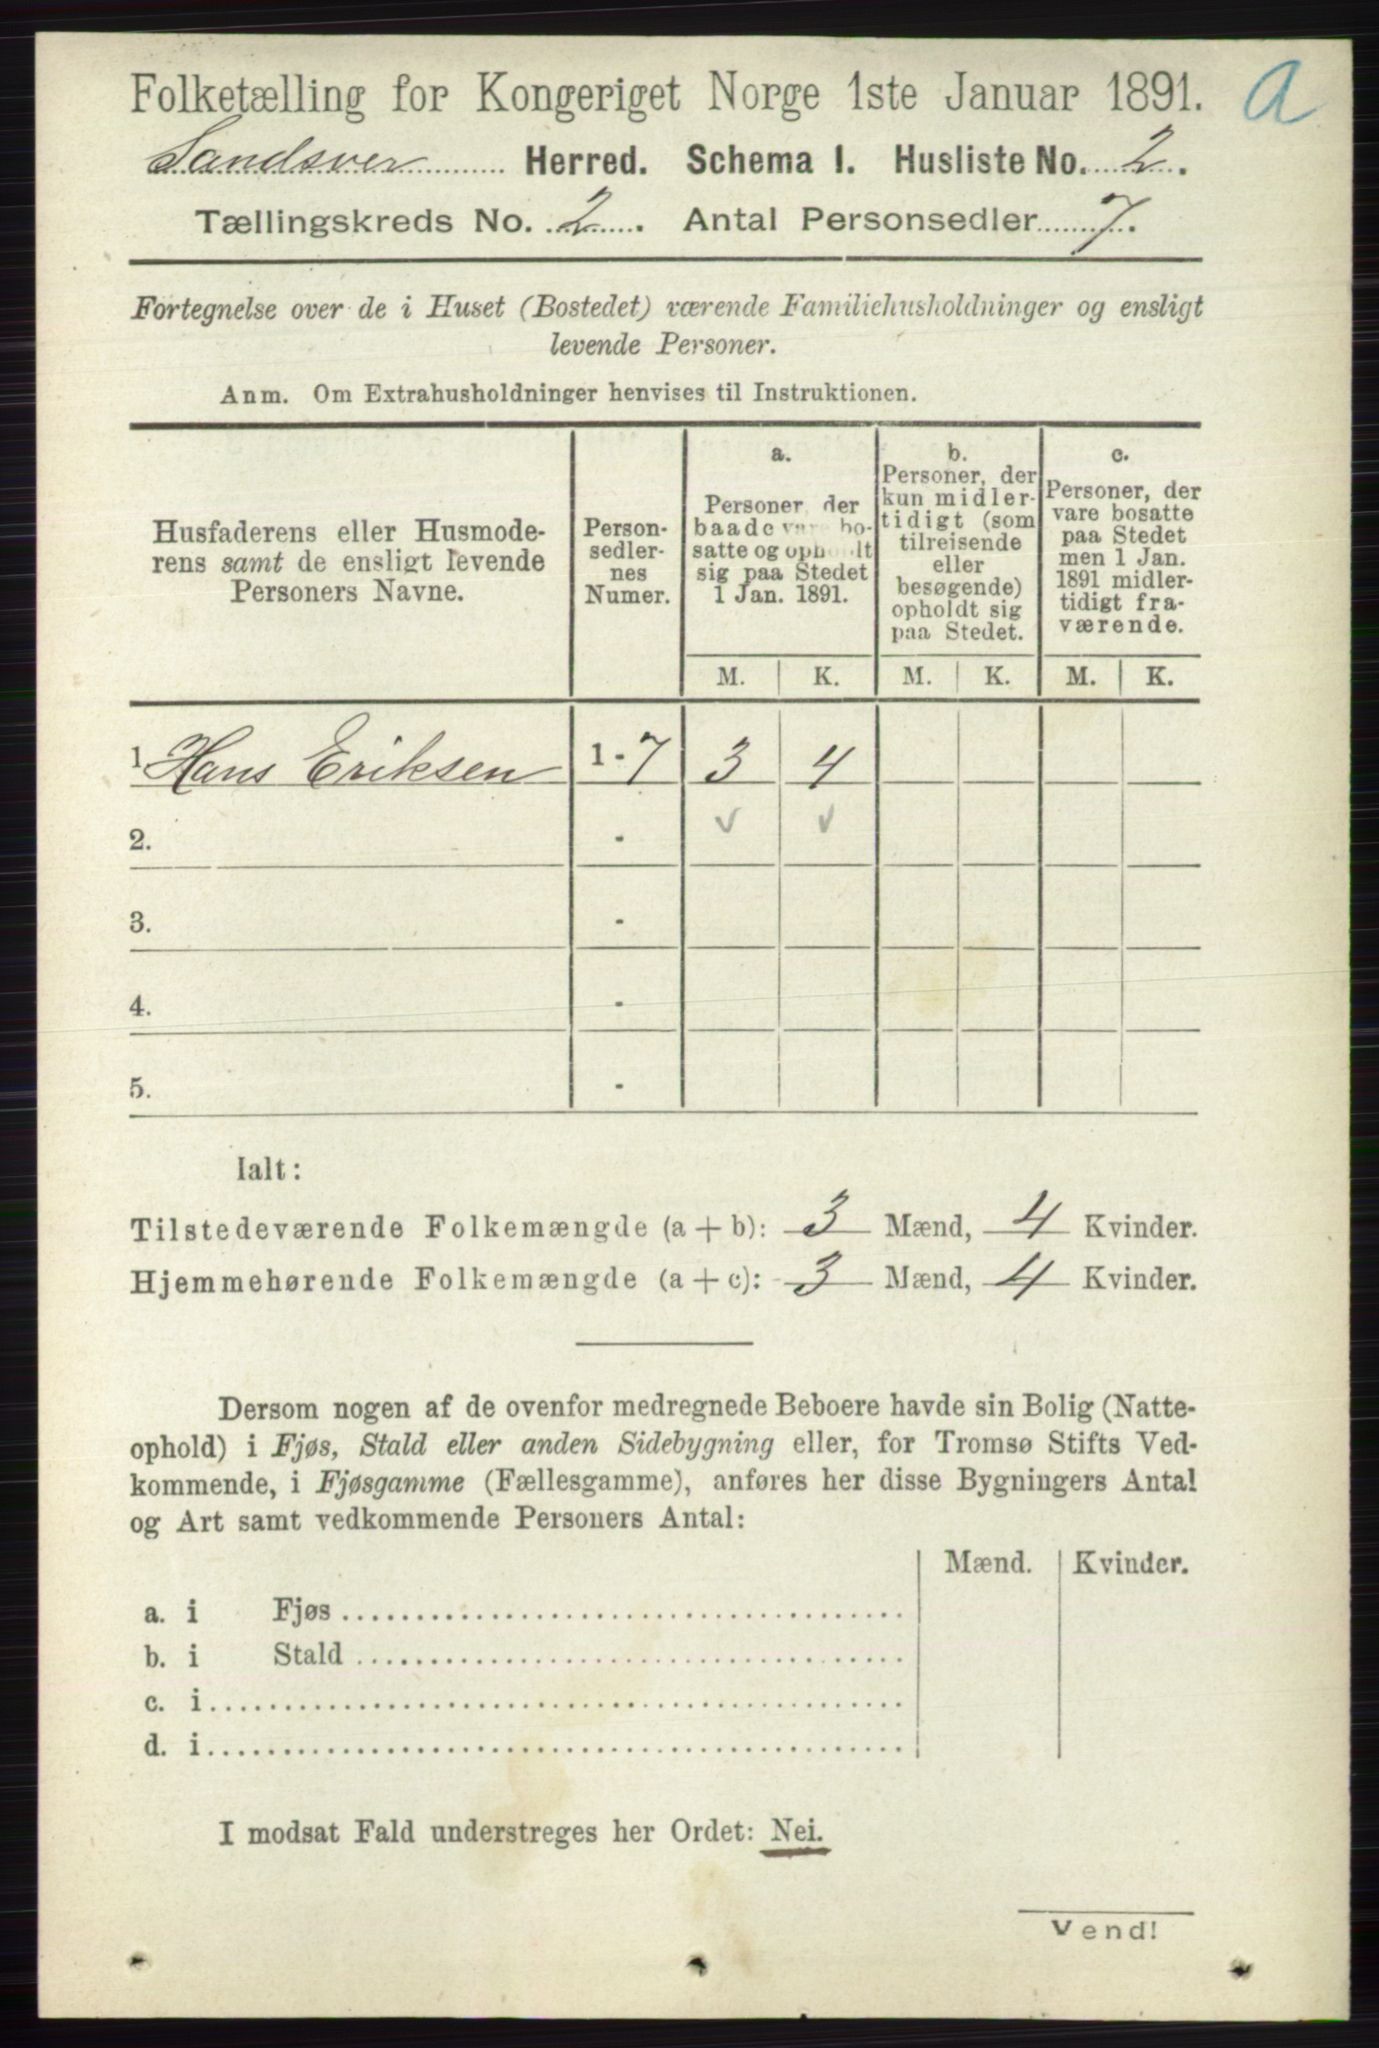 Folketælling for Kongeriget Norge 1ste Januar 1891. a
Sandsver Herred. Schema I. Husliste No. 2.
Tællingskreds No. 2. Antal Personsedler 7.
Fortegnelse over de i Huset (Bostedet) værende Familiehusholdninger og ensligt
levende Personer.
Anm. Om Extrahusholdninger henvises til Instruktionen.
Husfaderens eller Husmode-
rens samt de ensligt levende
Personers Navne.
Person-
sedler-
nes
Numer.
a.
Personer, der
baade vare bo-
satte og opholdt
sig paa Stedet
1 Jan. 1891.
b.
Personer, der
kun midler-
tidigt (som
tilreisende
eller
besøgende)
opholdt sig
paa Stedet.
c.
Personer, der
vare bosatte
paa Stedet
men 1 Jan.
1891 midler-
tidigt fra-
værende.
M. K. M. K. M. K.
1 Hans Eriksen 1-7 3 4
2. -
3. -
4. -
5. -
Ialt:
Tilstedeværende Folkemængde (a + b): 3 Mænd, 4 Kvinder.
Hjemmehørende Folkemængde (a + c): 3 Mænd, 4 Kvinder.
Dersom nogen af de ovenfor medregnede Beboere havde sin Bolig (Natte-
ophold) i Fjøs, Stald eller anden Sidebygning eller, for Tromsø Stifts Ved-
kommende, i Fjøsgamme (Fællesgamme), anføres her disse Bygningers Antal
og Art samt vedkommende Personers Antal:
Mænd. Kvinder.
a. i Fjøs
b. i Stald
c. i
d. i
I modsat Fald understreges her Ordet: Nei.
Vend!